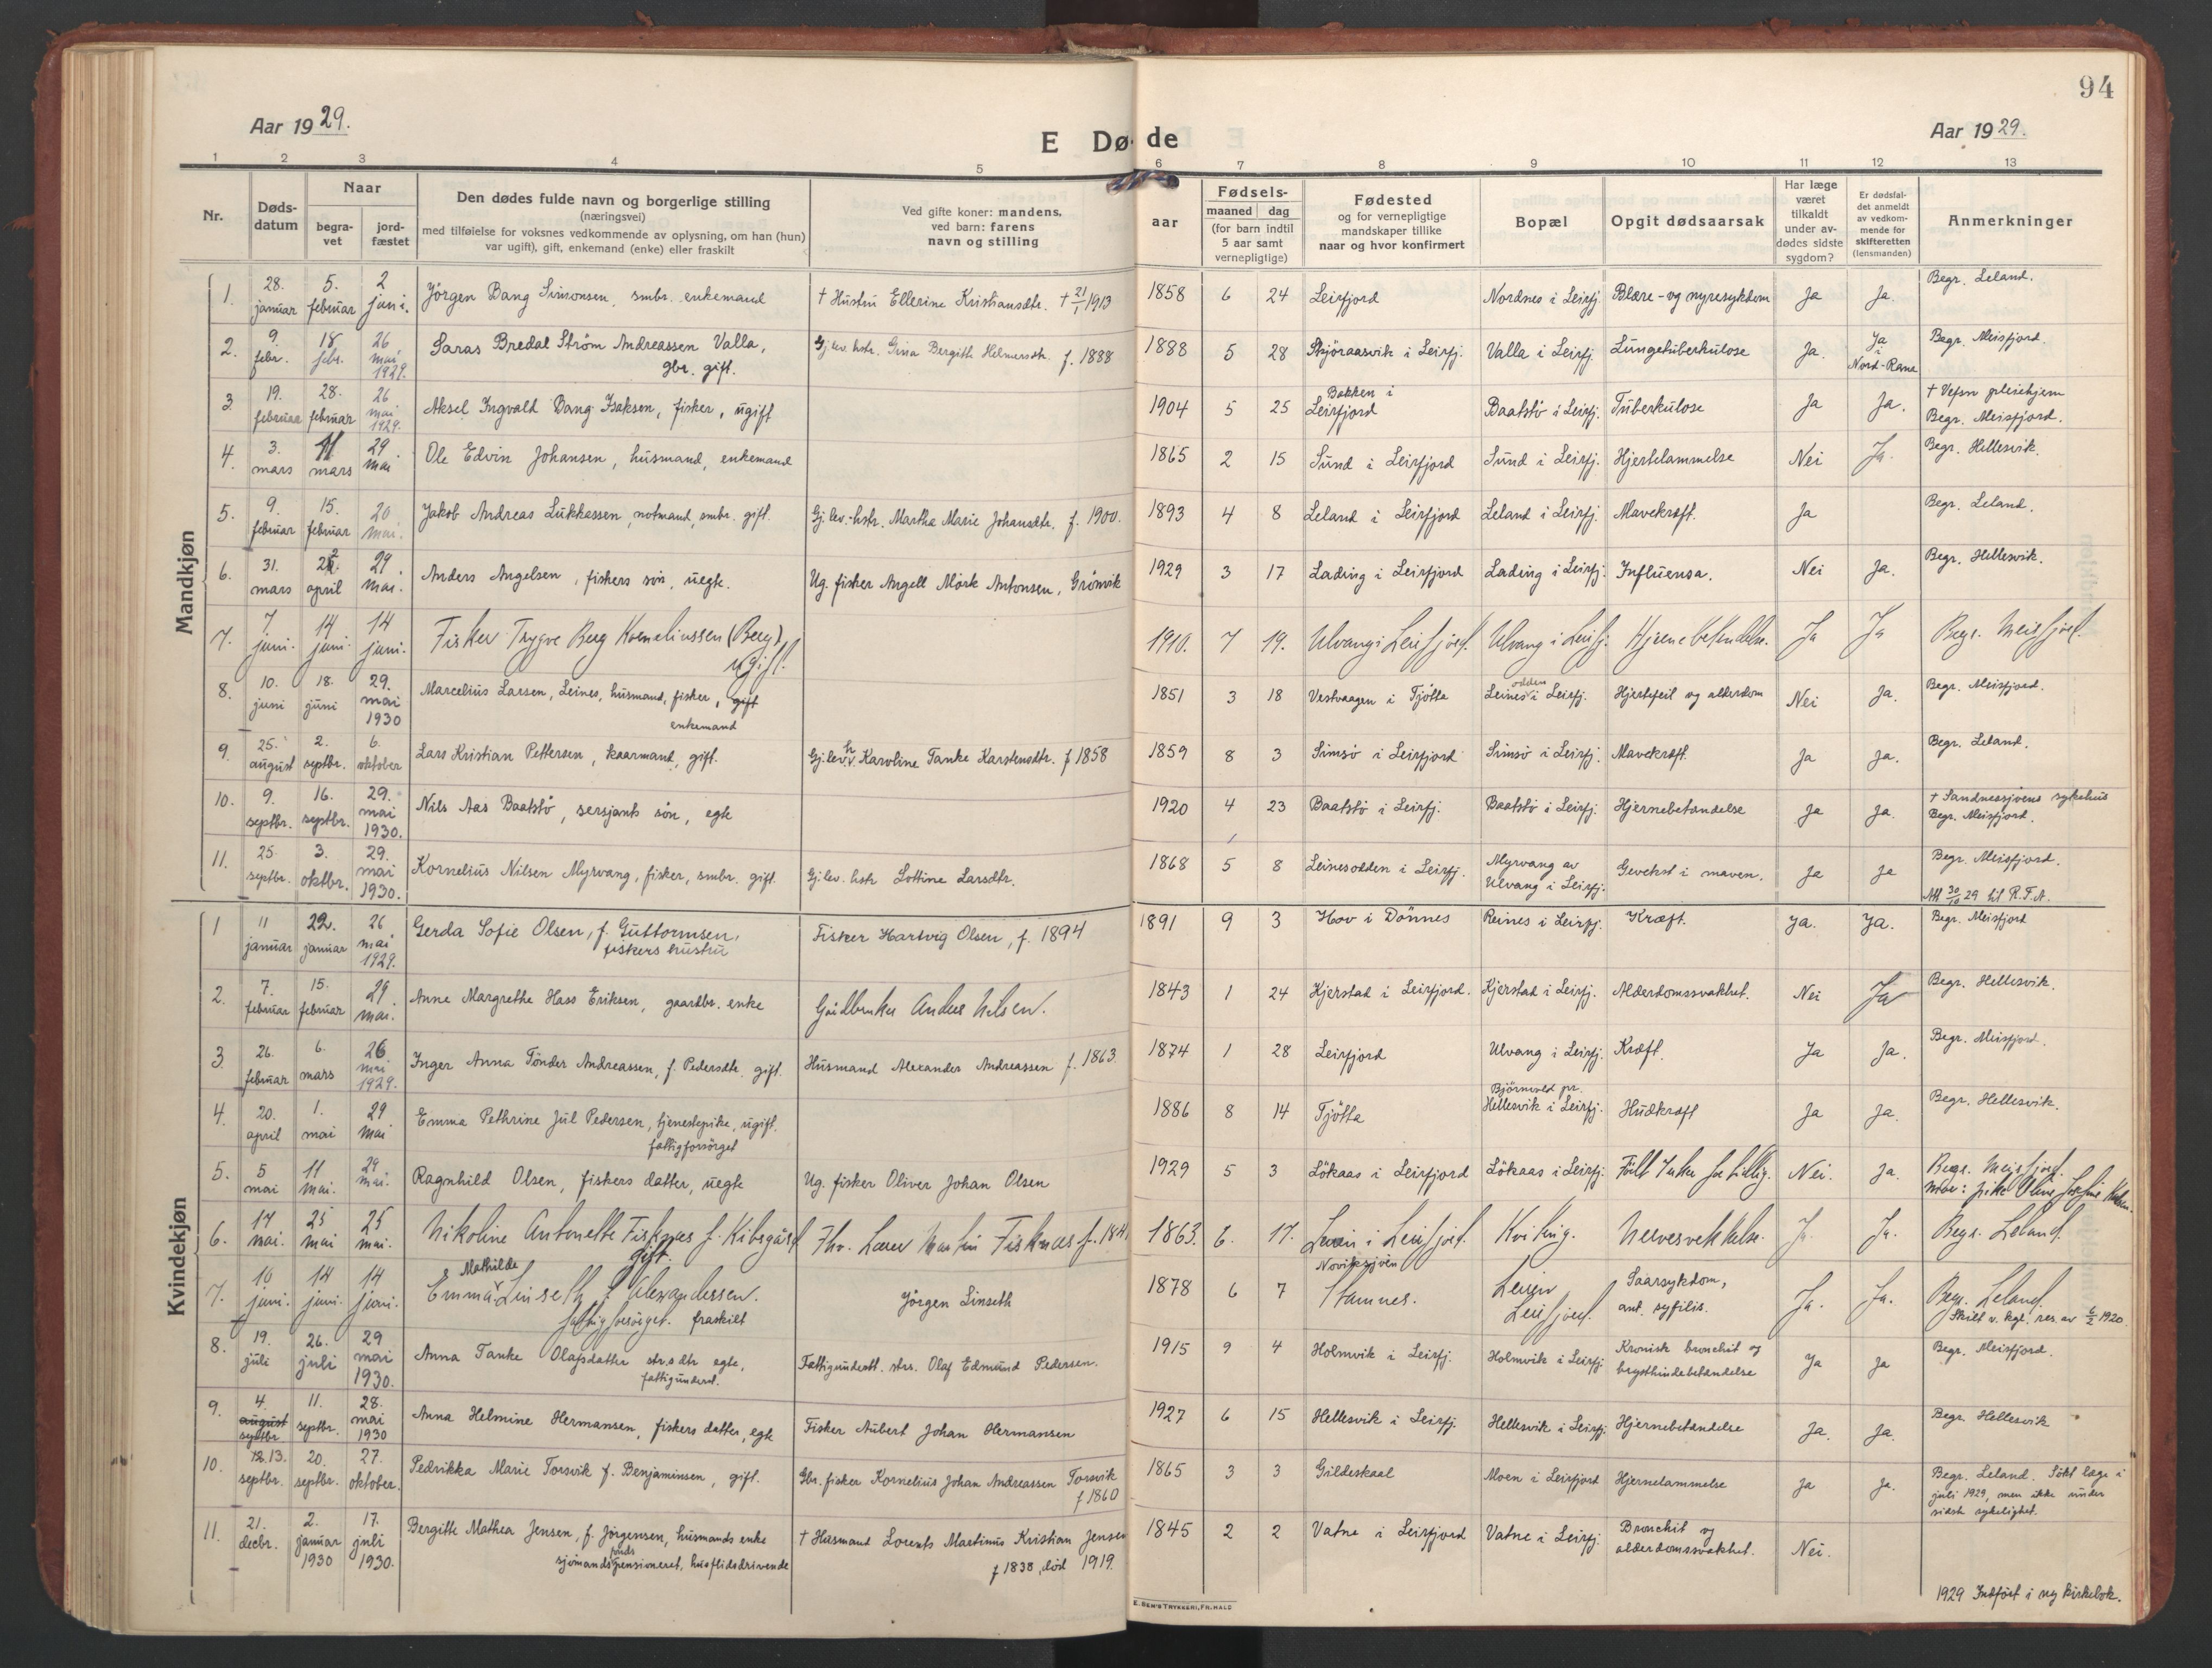 94
Aar 1929.
E Døde
Aar 1929.
1 2 3 4 5 6 7 8 9 10 11 12 13
Nr.
Dødsdatum
Naar
begravet
jordfæstet
Den dødes fulde navn og borgerlige stilling
(næringsvei)
med tilføielse for voksnes vedkommende av oplysning, om han (hun)
var ugift), gift, enkemand (enke) eller fraskilt
Ved gifte koner: mandens,
ved barn: farens
navn og stilling
Fødsels-
aar
maaned dag
(for barn indtil
5 aar samt
vernepligtige)
Fødested
og for vernepligtige
mandskaper tillike
naar og hvor konfirmert
Bopæl
Opgit dødsaarsak
Har læge
været
tilkaldt
under avdødes sidste
sygdom?
Er dødsfaldet anmeldt
av vedkommende for
skifteretten
(lensmanden)
Anmerkninger
Mandkjøn
1. 28. januar 5. februar 2 juni. Jörgen Bang Simonsen, smbr. enkemand † Hustru Ellerine Kristiansdtr. † 21/1 1913 1858 6 24 Leirfjord Nordnes i Leirfj. Blære- og nyresykdom Ja Ja. Begr. Leland.
2. 9. febr. 18. febr. 26 mai 1929. Saras Bredal Ström Andreassen Valla, gbr. gift. Gj.lev. hstr. Gina Bergitte Helmersdtr. f. 1888 1888 5 28 Skjöraasvik i Leirfj. Valla i Leirfj. Lungetuberkulose Ja. Ja i Nord-Rana Begr. Meisfjord.
3. 19. februar 28. februar 26 mai 1929. Aksel Ingvald Bang Isaksen, fisker, ugift 1904 5 25 Bakken i Leirfjord Baatstö i Leirfj. Tuberkulose Ja Ja. † Vefsn pleiehjem Begr. Meisfjord.
4. 3. mars 11 mars 29 mai Ole Edvin Johansen, husmand, enkemand 1865 2 15 Sund i Leirfjord Sund i Leirfj. Hjertelammelse Nei Ja. Begr. Hellesvik.
5. 9. februar 15. februar 20 mai. Jakob Andreas Lukkassen, notmand, smbr. gift. Gj.lev.-hstr. Martha Marie Johansdtr. f. 1900. 1893 4 8 Leland i Leirfjord Leland i Leirfj. Mavekræft. Ja Begr. Leland.
6. 31. mars 2 april 29. mai. Anders Angelsen, fiskers sön, uegte. Ug. fisker Angell Mörk Antonsen, Grönvik 1929 3 17 Lading i Leirfjord Lading i Leirfj. Influensa. Nei Ja. Begr. Hellesvik.
7. 7 juni. 14 juni. 14 juni. Fisker Trygve Berg Korneliussen (Berg), ugift. 1910. 7 19. Ulvang i Leirfjord. Ulvang i Leirfj. Hjernebetændelse. Ja Ja Begr. Meisfjord.
8. 10. juni 18. juni 29. mai 1930 Marcelius Larsen, Leines, husmand, fisker, gift enkemand 1851 3 18 Vestvaagen i Tjötta Leinesodden i Leirfj. Hjertefeil og alderdom Nei Ja. Begr. Meisfjord.
9. 25. august 2. septbr. 6. oktober Lars Kristian Pettersen, kaarmand, gift. Gj.lev. h. Karoline Tanke Karstensdtr. f 1858 1859 8 3 Simsö i Leirfjord Simsö i Leirfj. Mavekræft. Ja Ja. Begr. Leland.
10. 9. septbr. 16. septbr. 29. mai 1930. Nils Aas Baatstö, sersjants sön, egte 1920 4 23 Baatstö i Leirfj. Baatstö i Leirfj. Hjernebetændelse Ja Ja. † Sandnessjöens sykehus Begr. Meisfjord.
11. 25. septbr. 3. oktbr. 29. mai 1930. Kornelius Nilsen Myrvang, fisker, smbr. gift. Gj.lev. hstr Lottine Larsdtr. 1868 5 8 Leinesodden i Leirfj. Myrvang av Ulvang i Leirfj. Gevekst i maven. Ja Ja Begr. Meisfjord. Att 30/10 29 til R.F.A.
Kvindekjøn
1 11 januar 22. januar 26 mai 1929. Gerda Sofie Olsen, f. Guttormsen, fiskers hustru Fisker Hartvig Olsen, f. 1894 1891 9 3 Hov i Dönnes Reines i Leirfj. Kræft. Ja. Ja. Begr. Meisfjord
2. 7. februar 15. februar 29. mai. Anne Margrethe Hass Eriksen, gaardbr. enke Gårdbruker Anders Nilsen. 1843 1 24 Kjerstad i Leirfjord. Kjerstad i Leirfj. Alderdomssvakhet. Nei Ja Begr. Hellesvik.
3 26. februar 6. mars 26. mai 1929. Inger Anna Tönder Andreassen, f. Pedersdtr. gift. Husmand Alexander Andreassen f. 1863. 1874 1 28 Leirfjord Ulvang i Leirfj. Kræft. Ja Ja. Begr. Meisfjord.
4. 20. april 1. mai 29 mai Emma Pethrine Jul Pedersen, tjenestepike, ugift. fattigforsörget 1886 8 14 Tjötta Björnvold pr. Hellesvik i Leirfj. Hudkræft Ja Ja. Begr. Hellesvik.
5. 5 mai 11 mai. 29 mai. Ragnhild Olsen, fiskers datter, uegte Ug. fisker Oliver Johan Olsen 1929 5 3 Lökaas i Leirfjord Lökaas i Leirfj. Födt 7 uker for tidlig. Nei. Ja. Begr. Meisfjord. Mor: pike Oline
6. 17 mai. 25 mai 25 mai. Nikoline Antonette Fisknes f. Kibsgård gift. Fhv. Lærer Martin Fisknes f. 184 1863. 6. 17. i Leirfjord. Kviting. Nervesvekkelse. Ja. Ja. Begr. Leland.
7. 10 juni. 14 juni. 14 juni. Emma Mathilde Linseth f. Alexandersen. fattigforsörget. fraskilt Jörgen Linseth 1878 6 7 Noviksjöen Stamnes. Leiren Leirfjord. Saarsykdom, ant. syfilis. Ja. Ja. Begr. Leland Skilt v. kgl. res. av 6/2 1920.
8. 19. juli 26. juli 29 mai 1930. Anna Tanke Olafsdatter strs.dtr egte, fattigunderst. Fattigunderst. strs. Olaf Edmund Pedersen. 1915 9 4 Holmvik i Leirfj. Holmvik i Leirfj. Kronisk bronchit og brysthindebetændelse Ja Ja Begr. Meisfjord.
9. 4. august septbr 11. septbr. 28. mai 1930 Anna Helmine Hermansen, fiskers datter, egte Fisker Aubert Johan Hermansen 1927 6 15 Hellesvik i Leirfj. Hellesvik i Leirfj. Hjernebetændelse Ja. Ja. Begr. Hellesvik
10. 12. 13. septbr. 20. septbr. 27. oktober. Pedrikka Marie Forsvik f. Benjaminsen, gift. Gbr. fisker Kornelius Johan Andreassen Forsvik f 1860 1865 3 3 Gildeskaal Moen i Leirfjord Hjernelammelse Ja Ja. Begr. Leland. Sökt læge i juli 1929, men ikke under sidste sykelighet.
11. 21. decbr. 2. januar 1930 17. juli 1930. Bergitte Mathea Jensen, f. Jörgensen, husmands enke sjömandsfondspensioneret, husflidsdrivende † Husmand Lorents Martinus Kristian Jensen f 1838, död 1919. 1845 2 2 Vatne i Leirfjord Vatne i Leirfj. Bronchit og alderdomssvakhet. Nei.
1929 Indfört i ny kirkebok.
E. SEM'S TRYKKERI, FR.HALD